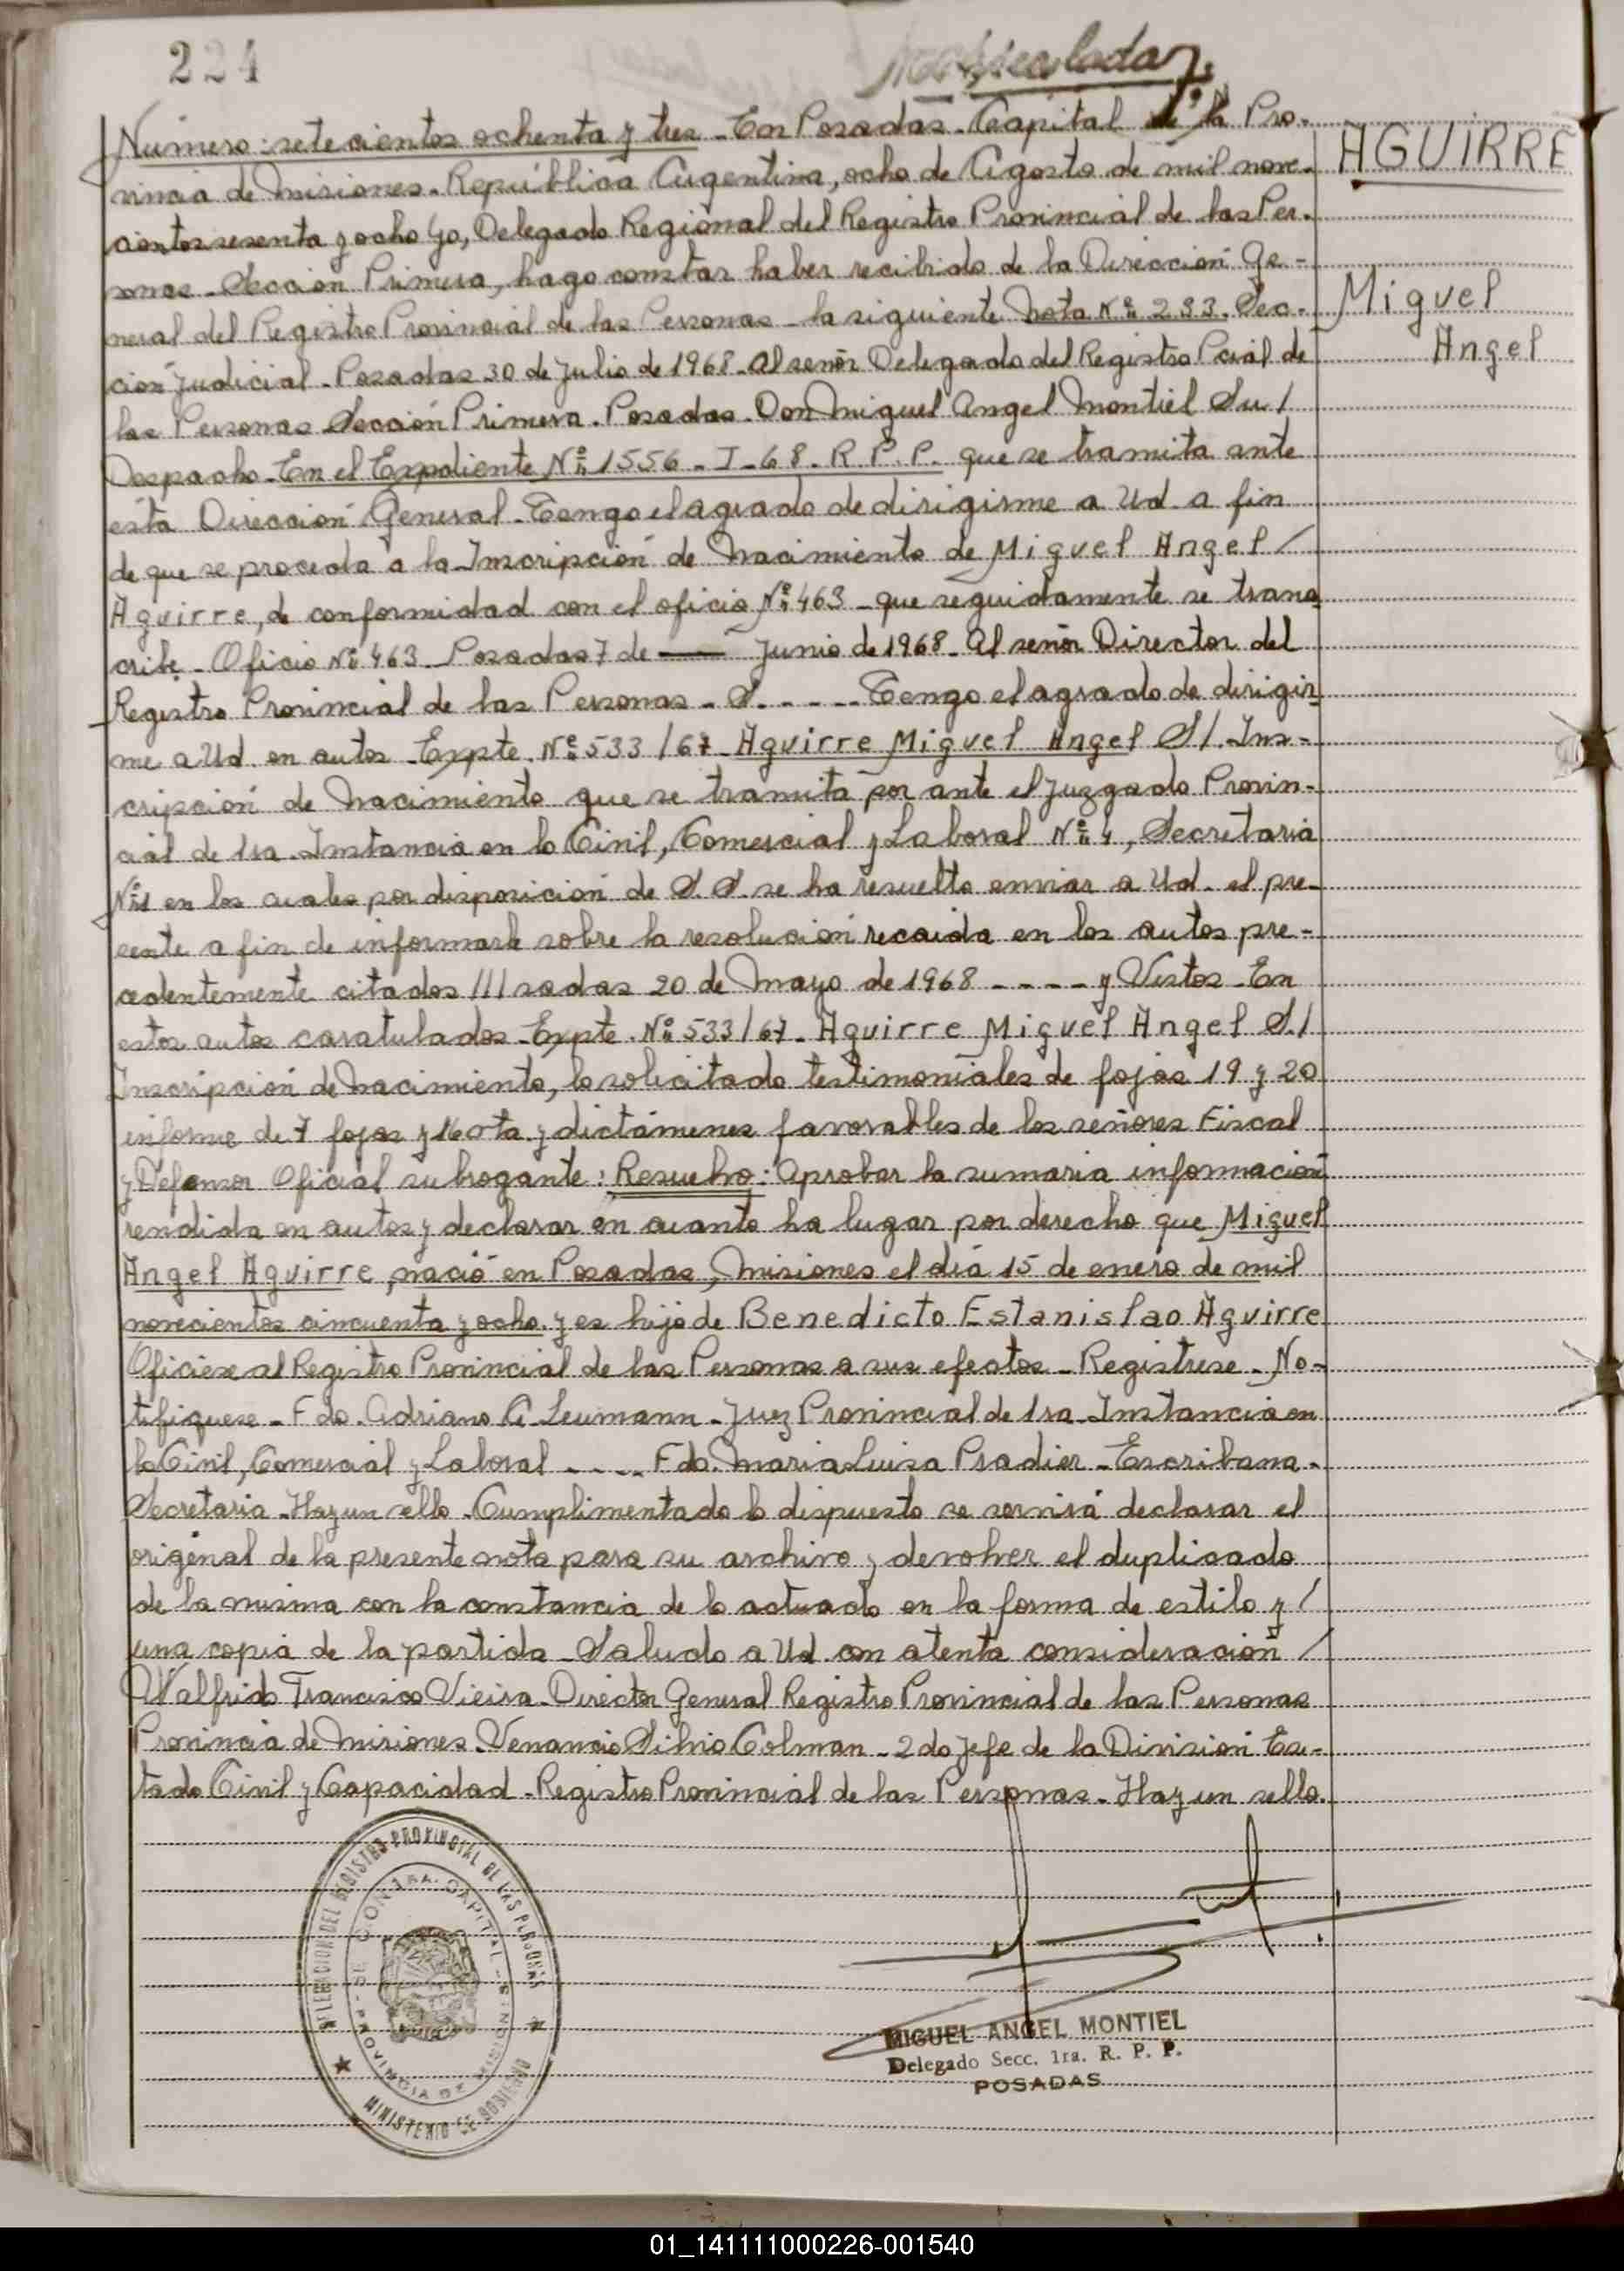 224
Número: setecientos ochenta y tres - En Posadas - Capital de la Pro-
vincia de Misiones - República Argentina, ocho de Agosto de mil nove-
cientos sesenta y ocho Yo, Delegado Regional del Registro Provincial de las Per-
sonas - Sección Primera, hago constar haber recibido de la Dirección Ge-
neral del Registro Provincial de las Personas - la siguiente Nota Nº 233. Sec-
ción Judicial - Posadas 30 de Julio de 1968 - Al señor Delegado del Registro Pcial de
las Personas Sección Primera. Posadas. Don Miguel Angel Montiel Su/
Despacho - En el Expediente Nº 1556 - I - 68 - R. P. P. que se tramita ante
ésta Dirección General - Tengo el agrado de dirigirme a Ud. a fin
de que se proceda a la Inscripción de Nacimiento de Miguel Angel /
Aguirre, de conformidad con el oficio Nº 463 - que seguidamente se trans-
cribe - Oficio Nº 463 - Posadas 7 de — Junio de 1968 - Al señor Director del
Registro Provincial de las Personas - S. - - - - - Tengo el agrado de dirigir-
me a Ud. en autos - Expte. Nº 533/67 - Aguirre Miguel Angel S/. Ins-
cripción de Nacimiento que se tramita por ante el Juzgado Provin-
cial de 1ra. Instancia en lo Civil, Comercial y Laboral Nº 4, Secretaria
Nº 1 en los cuales por disposición de S. S. se ha resuelto enviar a Ud. el pre-
sente a fin de informarle sobre la resolución recaida en los autos pre-
cedentemente citados /// sadas 20 de Mayo de 1968 - - - - y Vistos - En
estos autos caratulados - Expte. Nº 533/67 - Aguirre Miguel Angel S./
Inscripción de Nacimiento, lo solicitado testimoniales de fojas 19 y 20
informe de 7 fojas y 16 vta y dictámenes favorables de los señores Fiscal
y Defensor Oficial subrogante: Resuelvo: Aprobar la sumaria información
rendida en autos y declarar en cuanto ha lugar por derecho que Miguel
Angel Aguirre, nació en Posadas, Misiones el día 15 de enero de mil
novecientos cincuenta y ocho. y es hijo de Benedicto Estanislao Aguirre
Oficiese al Registro Provincial de las Personas a sus efectos - Registrese - No-
tifiquese - Fdo. Adriano A. Leumann - Juez Provincial de 1ra - Instancia en
lo Civil, Comercial y Laboral - - - - Fdo. Maria Luisa Pradier - Escribana -
Secretaria - Hay un sello - Cumplimentado lo dispuesto se servirá declarar el
original de la presente nota para su archivo y devolver el duplicado
de la misma con la constancia de lo actuado en la forma de estilo y /
una copia de la partida - Saludo a Ud. con atenta consideración /
Walfrido Francisco Vieira - Director General Registro Provincial de las Personas
Provincia de Misiones - Venancio Silvio Colman - 2do Jefe de la División Es-
tado Civil y Capacidad - Registro Provincial de las Personas - Hay un sello.
AGUIRRE
Miguel
Angel
DELEGACION DEL REGISTRO PROVINCIAL DE LAS PERSONAS
SECCION 1RA. CAPITAL
PROVINCIA DE MISIONES
MINISTERIO DE GOBIERNO
MIGUEL ANGEL MONTIEL
Delegado Secc. 1ra. R. P. P.
POSADAS
01_141111000226-001540